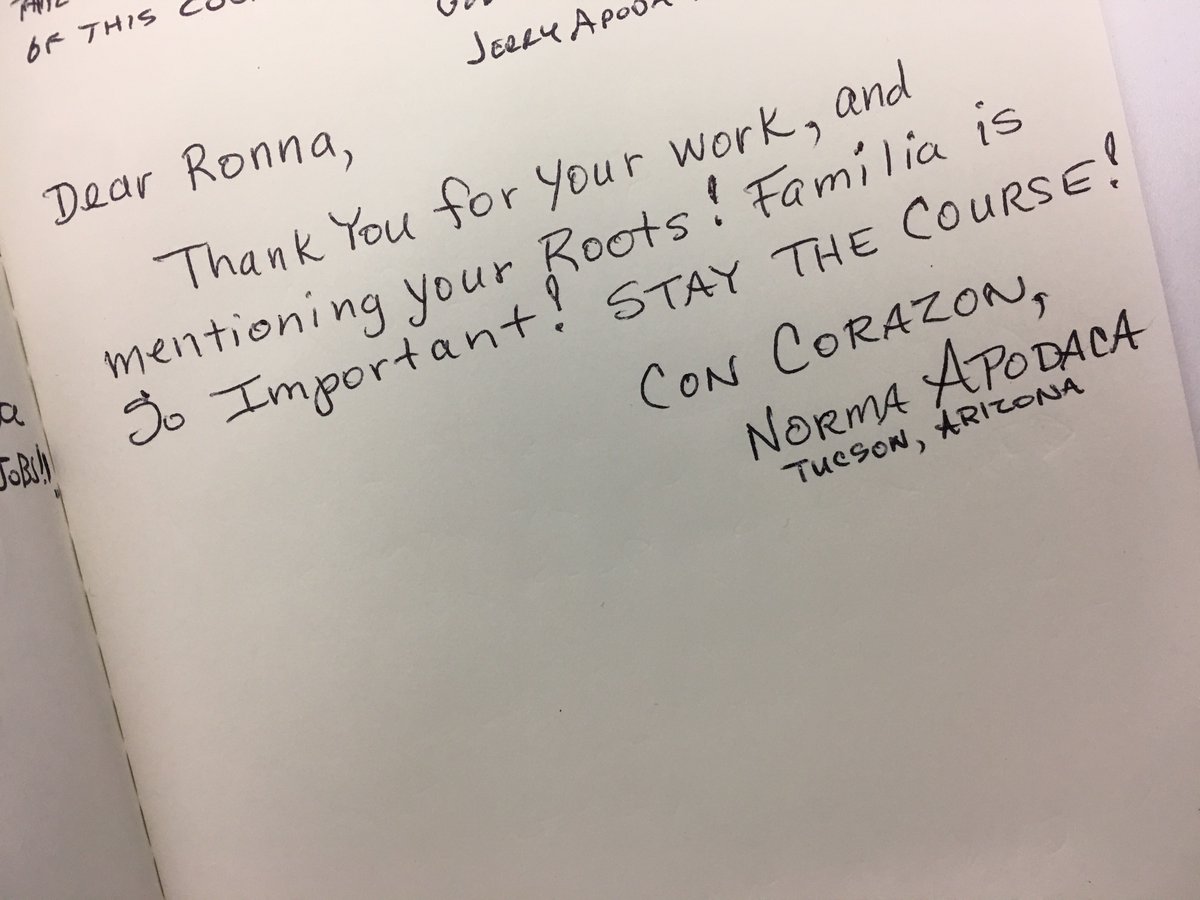 OF THIS
JERRY
Dear Ronna,
Thank You for your work, and
mentioning your Roots! Familia is
So Important! STAY THE COURSE!
CON CORAZON,
NORMA APODACA
TUCSON, ARIZONA
JOBS!!